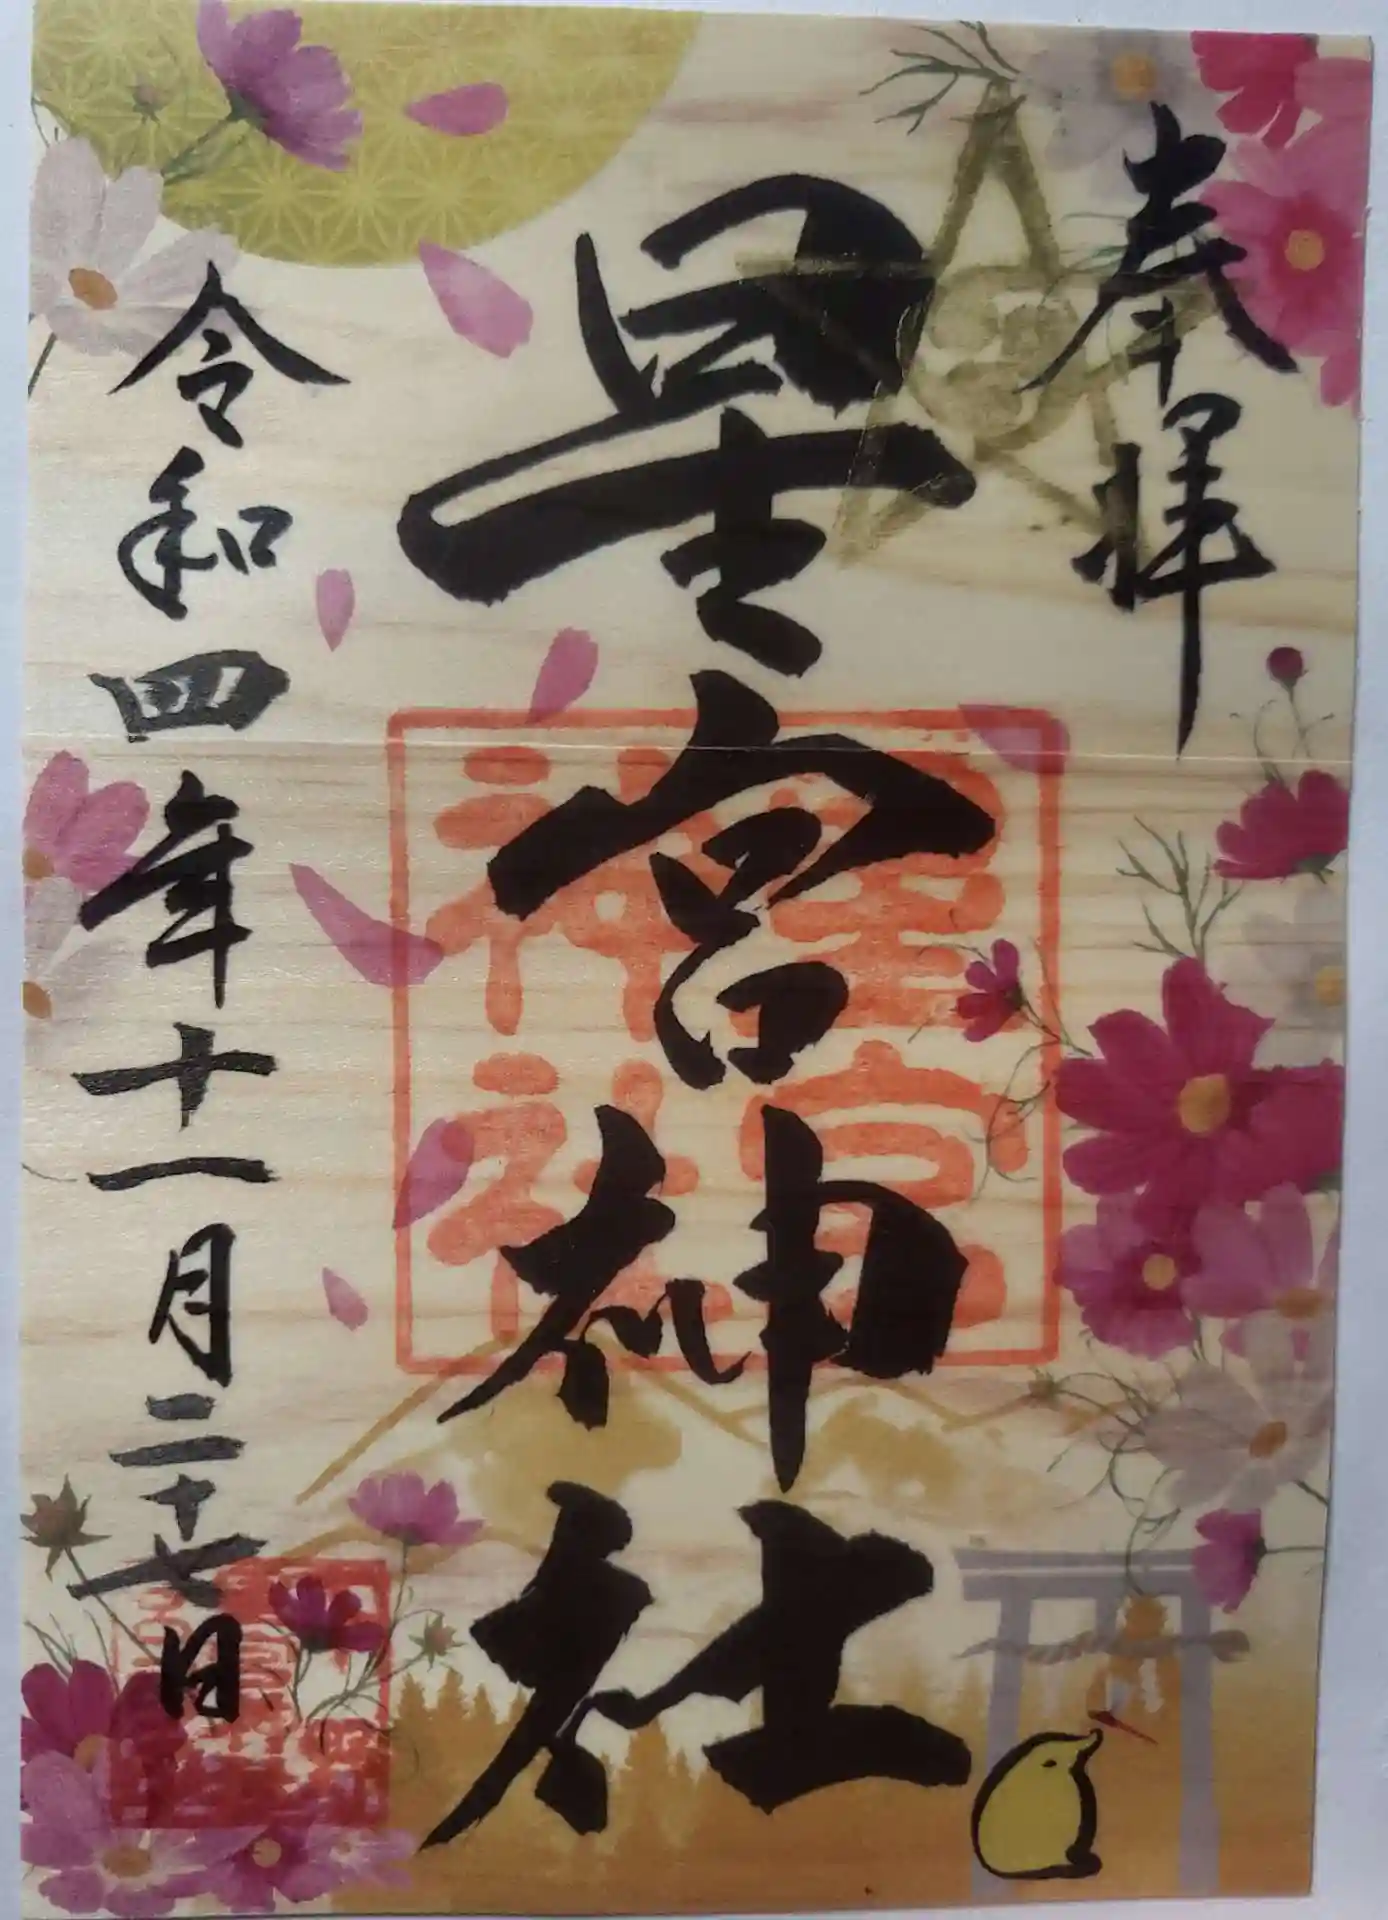 奉拝
星宮神社
星宮
神社
令和四年十一月二十七日